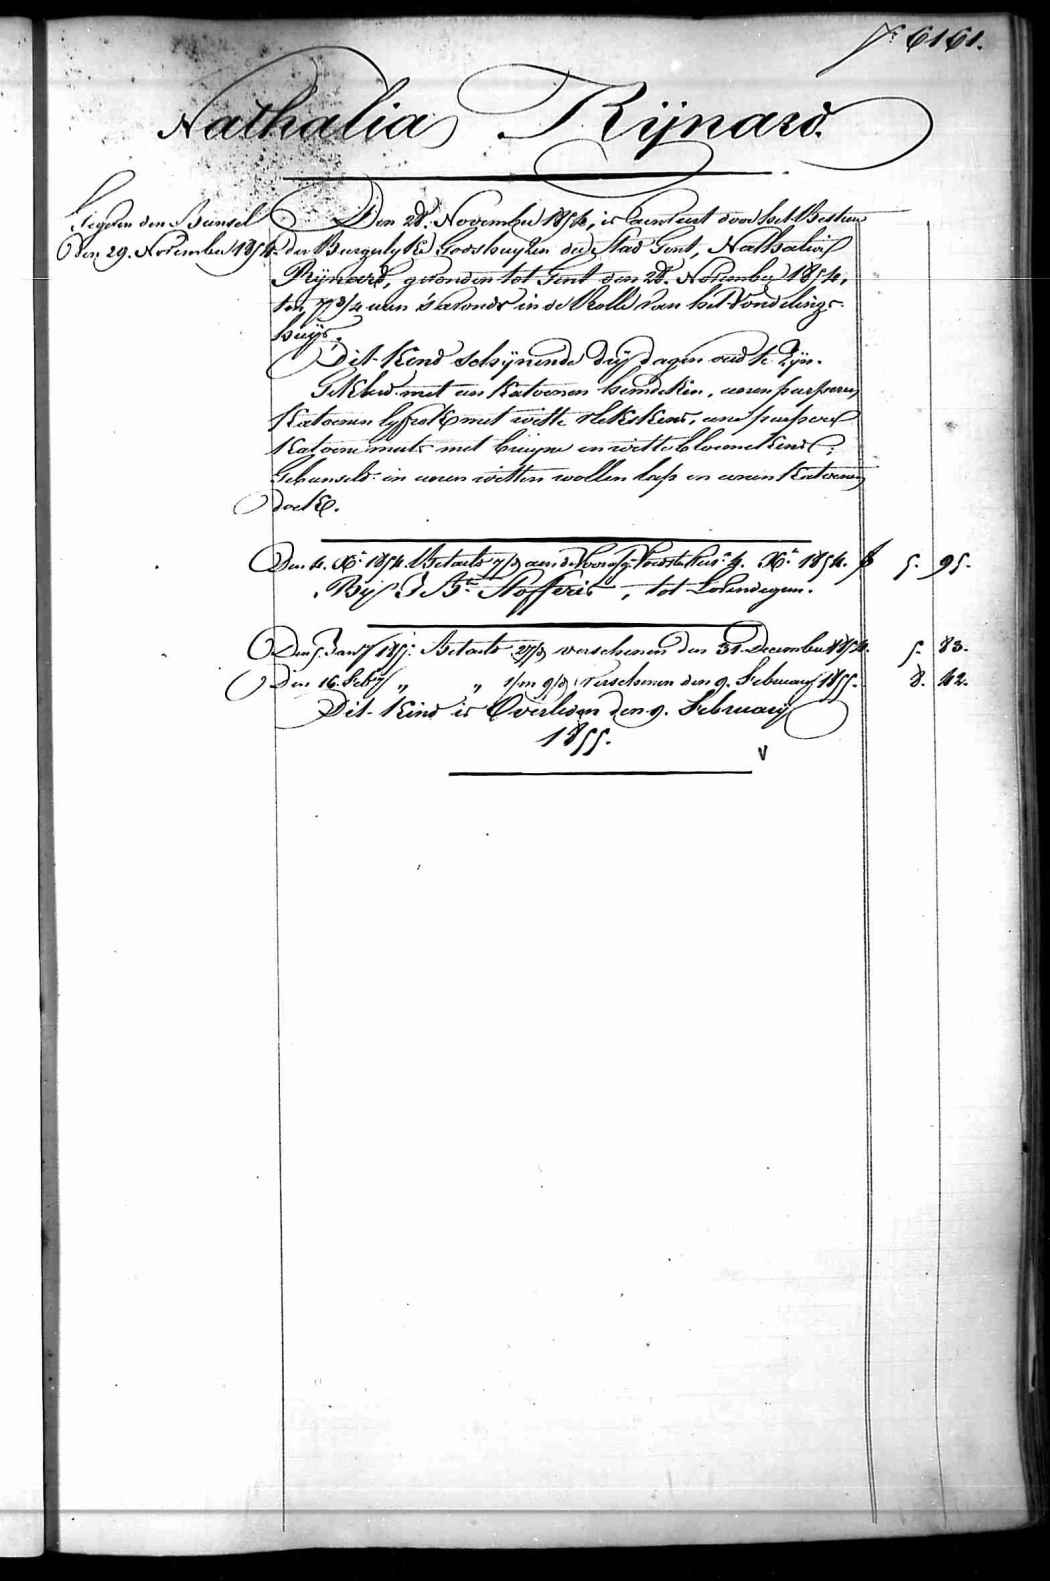 N.º 6161.
Nathalia Rijnard.
Tegen den Bunsel
Den 29. November 1854.
Den 28. November 1854, is aenveert door het Bestier
der Burgelyke Godshuyzen der Stad Gent, Nathalia
Rijnard, gevonden tot Gent den 28. November 1854,
ten 7 3/4 uren s'avonds in de Rolle van het Vondelings-
huijs.
Dit Kind schijnende drij dagen oud te zijn.
Gekleed met een Katoenen hemdeken, eenen purperen
Katoenen lyfrok met witte vlekskens, eene purpere
Katoene muts met bruyne en witte bloemekens;
Gebunseld in eenen witten wollen lap en eenen Katoenen
doek.
Den 4. Xb. 1854. Betaelt aen de Voedster 4. Xb. 1854. f 5. 95.
Bij J. Bte Stofferis, tot Lovendegem.
Den 5. Jany 1855. Betaelt 27/d verschenen den 31 December 1854. 5. 83.
Den 16. Feby „ „ 1/m 9/d verschenen den 9. February 1855. 8. 42.
Dit Kind is Overleden den 9. February
1855.